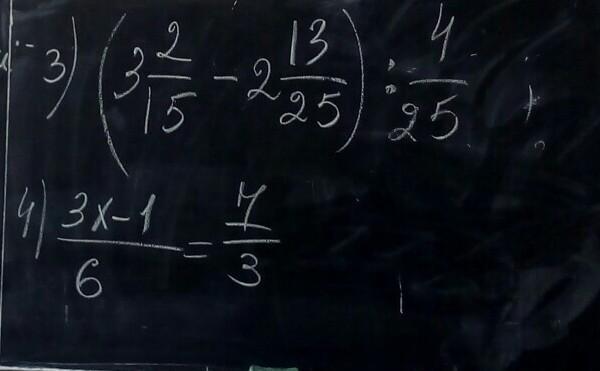 3) (3 2/15 - 2 13/25) : 4/25
4) (3x-1)/6 = 7/3